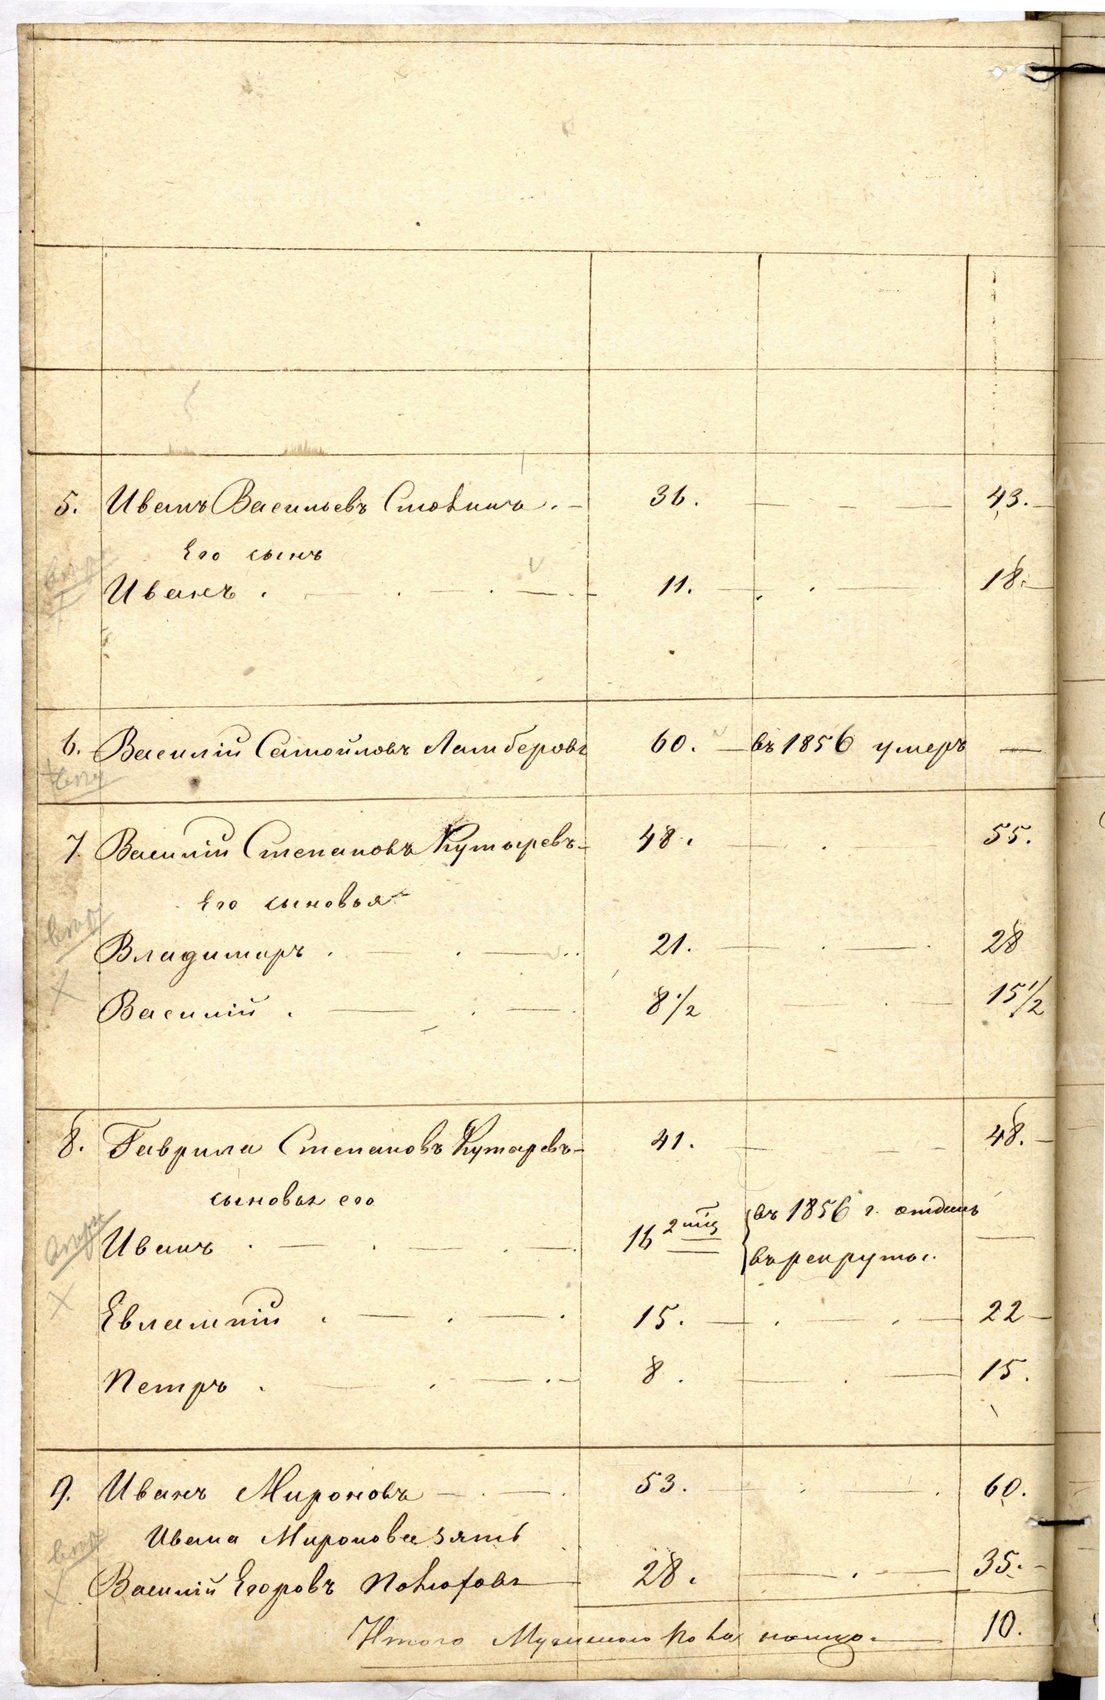 5. Иванъ Васильевъ 36. 43.
Его сынъ
Иванъ 11. 18.
6. Василій Самойловъ Ламберовъ 60. въ 1856 умеръ
7. Василій Степановъ Кутыревъ 48. 55.
Его сыновья
Владимиръ 21. 28
Василій 8 1/2 15 1/2
8. Гаврила Степановъ Кутыревъ 41. 48.
сыновья его
Иванъ 16 въ 1856 г. отданъ
въ рекруты.
Евлампій 15. 22
Петръ 8. 15.
9. Иванъ Мироновъ 53. 60.
Ивана Миронова зять
Василій Егоровъ 28. 35.
Итого Мужескаго пола налицо 10.